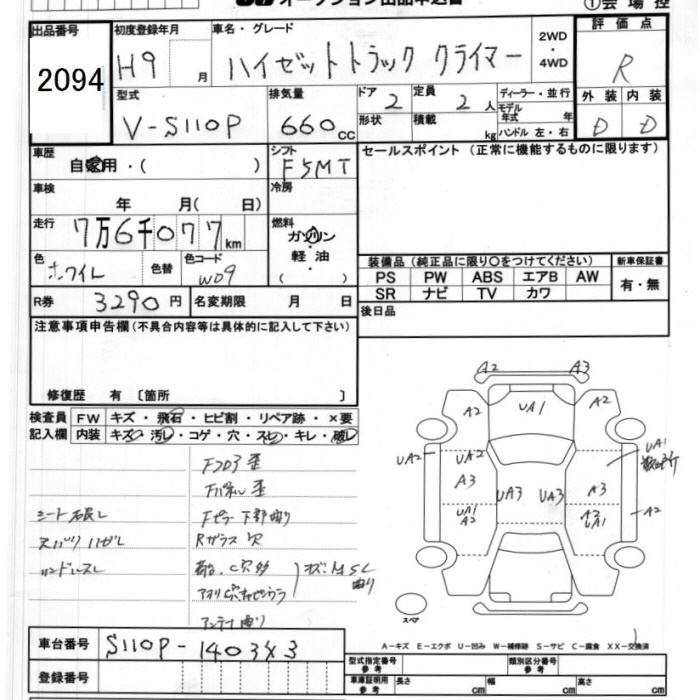 オークション出品申込書 ①会場控
出品番号 初度登録年月 車名・グレード 2WD・4WD 評価点
2094 H9 月 ハイゼットトラック クライマー R
型式 排気量 ドア 定員 ディーラー・並行 外装 内装
V-S110P 660cc 2 2人 モデル年式 年 D D
形状 積載 kg ハンドル 左・右
車歴 シフト セールスポイント (正常に機能するものに限ります)
自家用・( ) F5MT
車検 冷房
年 月( 日)
走行 燃料
7万6千077km ガソリン・軽油 ( )
色 色替 色コード 装備品 (純正品に限り○をつけてください) 新車保証書
ホワイト W09 PS PW ABS エアB AW 有・無
SR ナビ TV カワ
R券 3290円 名変期限 月 日 後日品
注意事項申告欄 (不具合内容等は具体的に記入して下さい)
修復歴 有 〔箇所 〕
検査員 FW キズ・飛石・ヒビ割・リペア跡・×要
記入欄 内装 キズ・汚レ・コゲ・穴・スレ・キレ・破レ
Fフロア歪
Fパネル歪
Fピラー下部曲り
Rガラス 欠
アンテナ曲り
A2 A3
A2 UA1 A2
UA2 UA2 UA1
A3 UA3 UA3 A3
UA1 A2 A2 UA1 A2
スペア
A-キズ E-エクボ U-凹み W-補修跡 S-サビ C-腐食 XX-交換済
車台番号 S110P-140343
型式指定番号 参考 類別区分番号 参考
登録番号 車庫証明用 参考 長さ cm 幅 cm 高さ cm